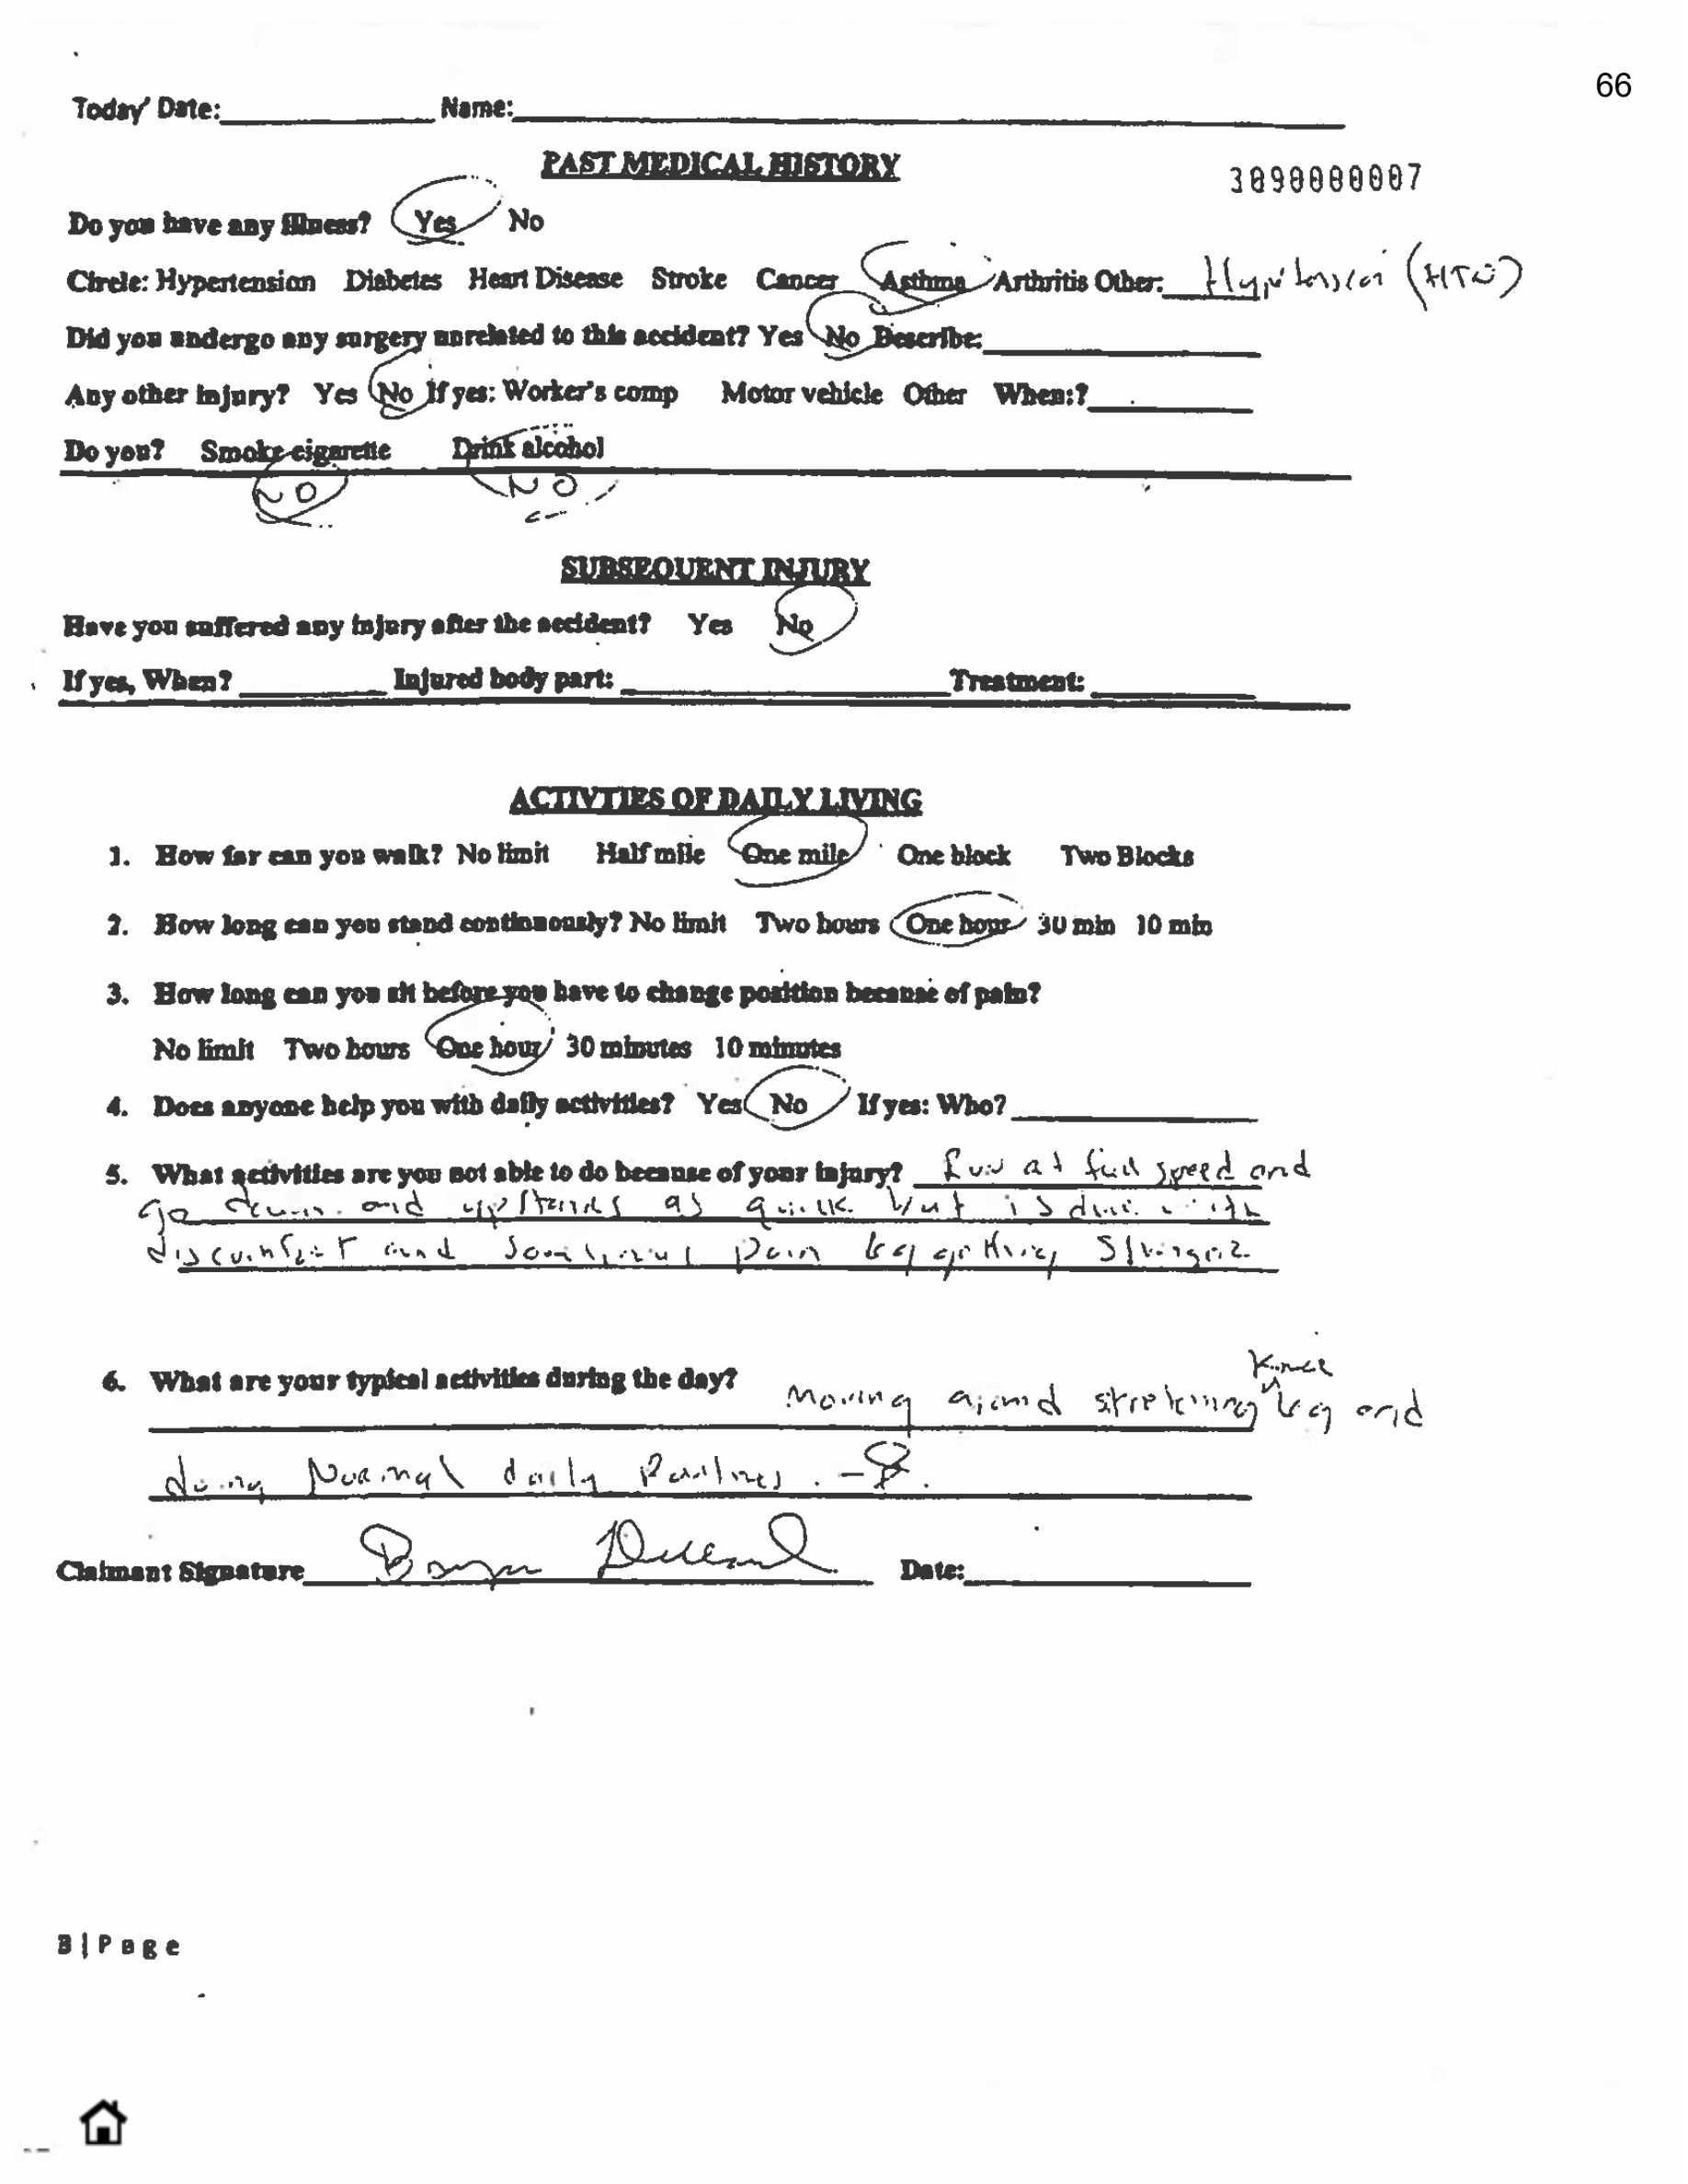 66
Today' Date: Name:
PAST MEDICAL HISTORY
3090000007
Do you have any illness? Yes No
Circle: Hypertension Diabetes Heart Disease Stroke Cancer Asthma Arthritis Other: (HTN)
Did you undergo any surgery unrelated to this accident? Yes No Describe:
Any other injury? Yes No If yes: Worker's comp Motor vehicle Other When:?
Do you? Smoke cigarette Drink alcohol
NO NO
SUBSEQUENT INJURY
Have you suffered any injury after the accident? Yes No
If yes, When? Injured body part: Treatment:
ACTIVTIES OF DAILY LIVING
1. How far can you walk? No limit Half mile One mile One block Two Blocks
2. How long can you stand continuously? No limit Two hours One hour 30 min 10 min
3. How long can you sit before you have to change position because of pain?
No limit Two hours One hour 30 minutes 10 minutes
4. Does anyone help you with daily activities? Yes No If yes: Who?
5. What activities are you not able to do because of your injury? Run at full speed and
go down and up as quick but is with
discomfort and pain leg getting
6. What are your typical activities during the day?
Knee
Moving stretching leg and
doing Normal daily
Claimant Signature Date:
3 | Page